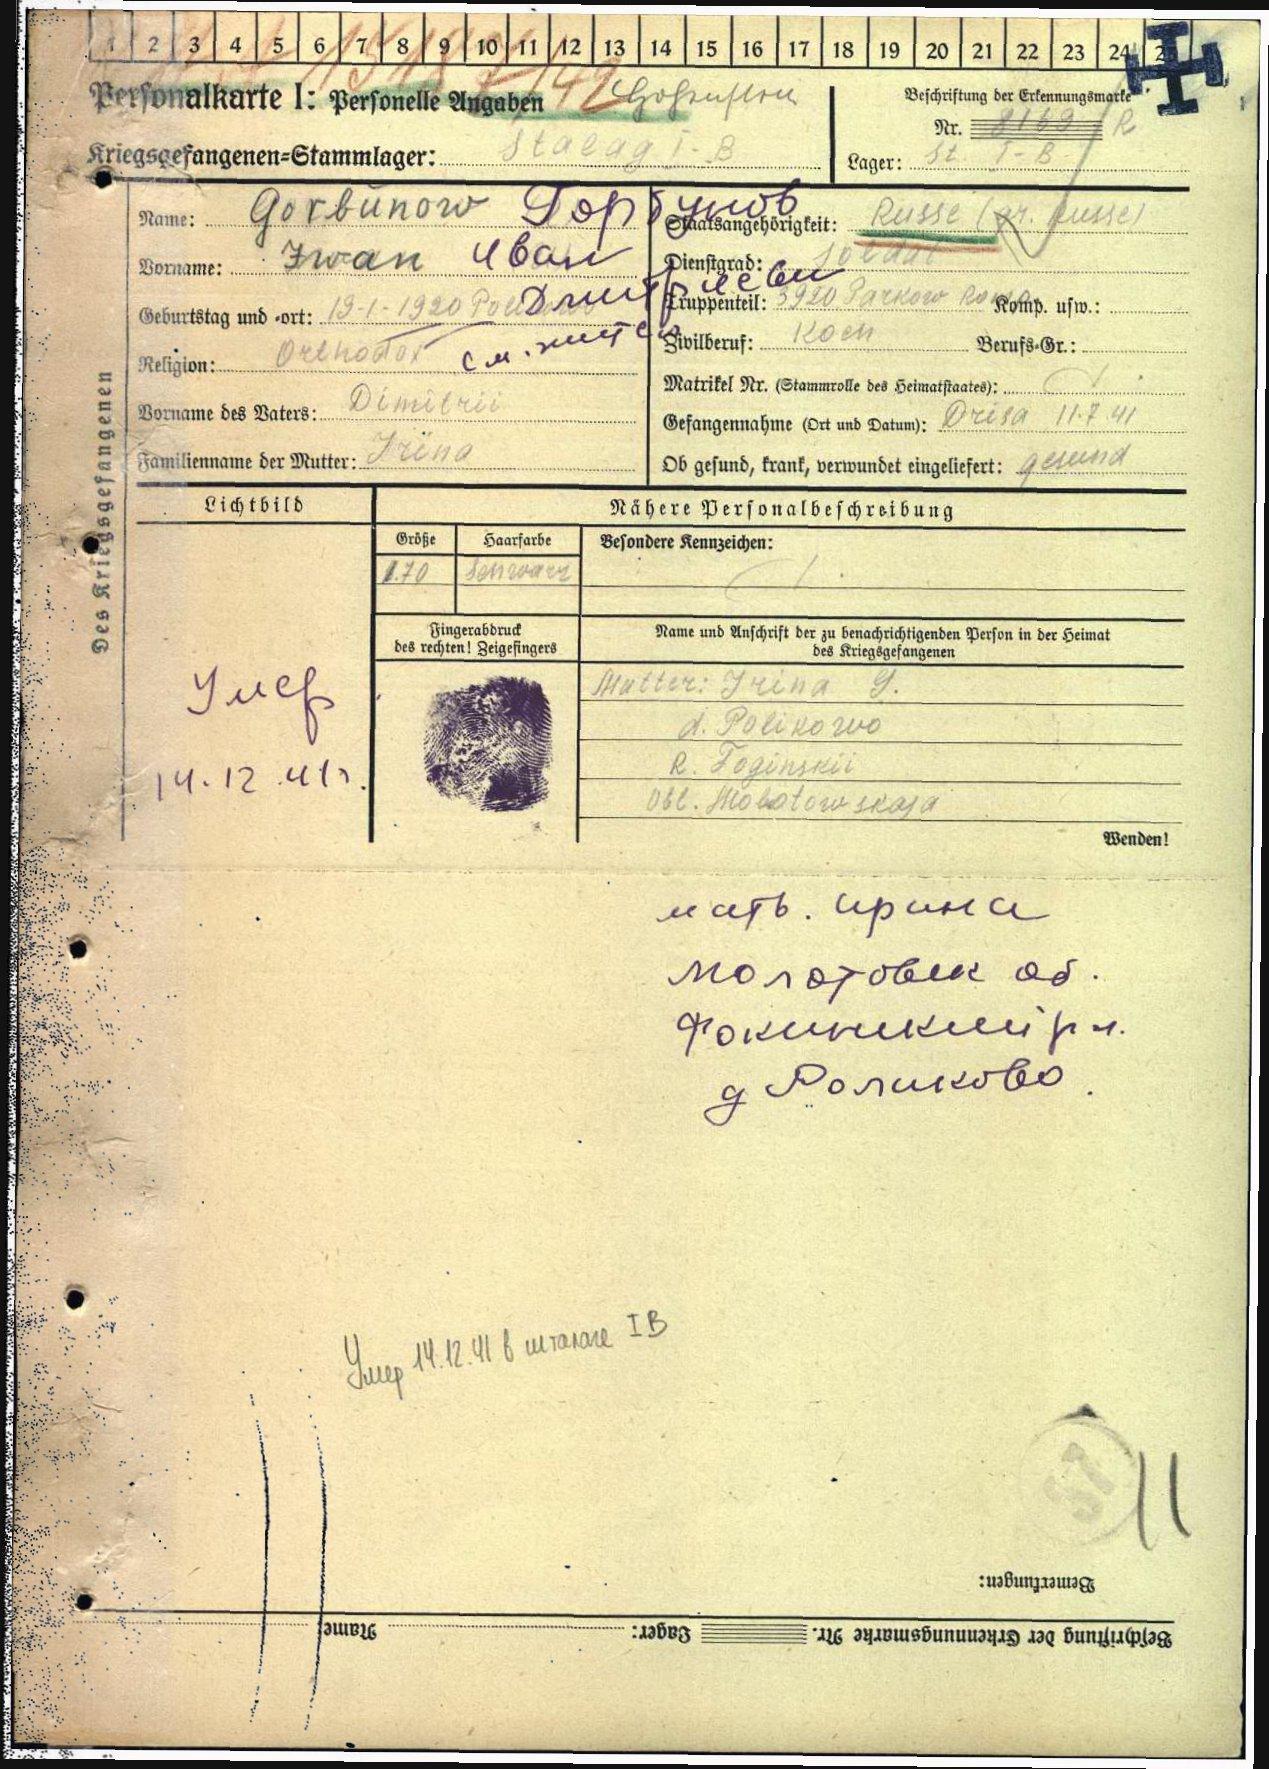 1 2 3 4 5 6 7 8 9 10 11 12 13 14 15 16 17 18 19 20 21 22 23 24 25
Personalkarte I: Personelle Angaben
Beschriftung der Erkennungsmarke
Nr. 8169 R
Kriegsgefangenen-Stammlager: Stalag I-B
Lager: St. I-B
Des Kriegsgefangenen
Name: Gorbunow Горбунов
Vorname: Iwan Иван
Дмитриеви
Geburtstag und -ort: 19-1-1920
Religion: Orthodox
см. житель
Vorname des Vaters: Dimitrii
Familienname der Mutter: Irina
Staatsangehörigkeit: Russe (gr. Russe)
Dienstgrad: Soldat
Truppenteil: 3920 Komp. usw.:
Zivilberuf: Koch Berufs-Gr.:
Matrikel Nr. (Stammrolle des Heimatstaates): /.
Gefangennahme (Ort und Datum): Drisa 11.7.41
Ob gesund, krank, verwundet eingeliefert: gesund
Lichtbild
Nähere Personalbeschreibung
Größe
Haarfarbe
Besondere Kennzeichen:
1.70
Schwarz
/.
Fingerabdruck
des rechten! Zeigefingers
Name und Anschrift der zu benachrichtigenden Person in der Heimat
des Kriegsgefangenen
Умер
14.12.41г.
Mutter: Irina G.
d. Polikowo
R. Foginskii
Obl. Molotowskaja
Wenden!
мать. Ирина
Молотовск об.
Фокинский р н.
д Роликово.
Умер 14.12.41 в шталаге IB
11
Bemerkungen:
Beschriftung der Erkennungsmarke Nr. Lager: Name: